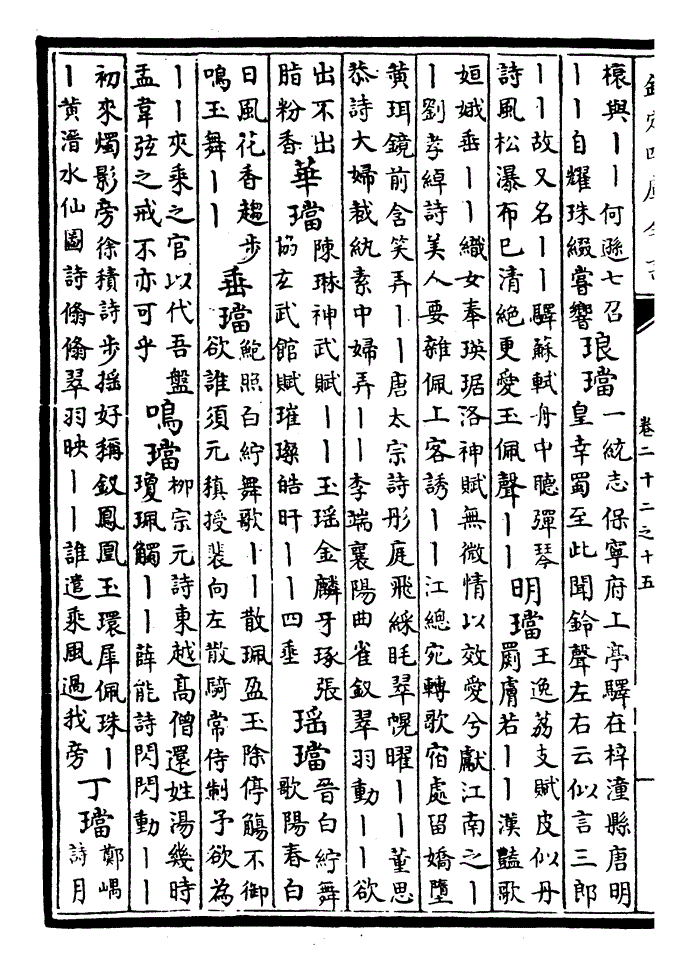 欽定四庫全書
卷二十二之十五
榱與丨丨何遜七召
丨丨自耀珠綴嘗響
琅璫
一統志保寧府上亭驛在梓潼縣唐明
皇幸蜀至此聞鈴聲左右云似言三郎
丨丨故又名丨丨驛蘇軾舟中聽彈琴
詩風松瀑布已清絶更愛玉佩聲丨丨
明璫
王逸荔支賦皮似丹
罽膚若丨丨漢豔歌
姮娥垂丨丨織女奉瑛琚洛神賦無微情以效愛兮獻江南之丨
丨劉孝綽詩美人要雜佩上客誘丨丨江總宛轉歌宿處留嬌墮
黄珥鏡前含笑弄丨丨唐太宗詩彤庭飛綵眊翠幌曜丨丨董思
恭詩大婦裁紈素中婦弄丨丨李端襄陽曲雀釵翠羽動丨丨欲
出不出
脂粉香
華璫
陳琳神武賦丨丨玉瑶金麟牙琢張
協玄武館賦璀璨皓旰丨丨四垂
瑶璫
晉白紵舞
歌陽春白
日風花香趨步
鳴玉舞丨丨
垂璫
鮑照白紵舞歌丨丨散珮盈玉除停觴不御
欲誰須元稹授裴向左散騎常侍制予欲為
丨丨夾乘之官以代吾盤
盂韋弦之戒不亦可乎
鳴璫
柳宗元詩東越高僧還姓湯幾時
瓊珮觸丨丨薛能詩閃閃動丨丨
初來燭影旁徐積詩步摇好稱釵鳳凰玉環犀佩珠丨
丨黄溍水仙圖詩翛翛翠羽映丨丨誰遣乘風過我旁
丁璫
鄭嵎
詩月